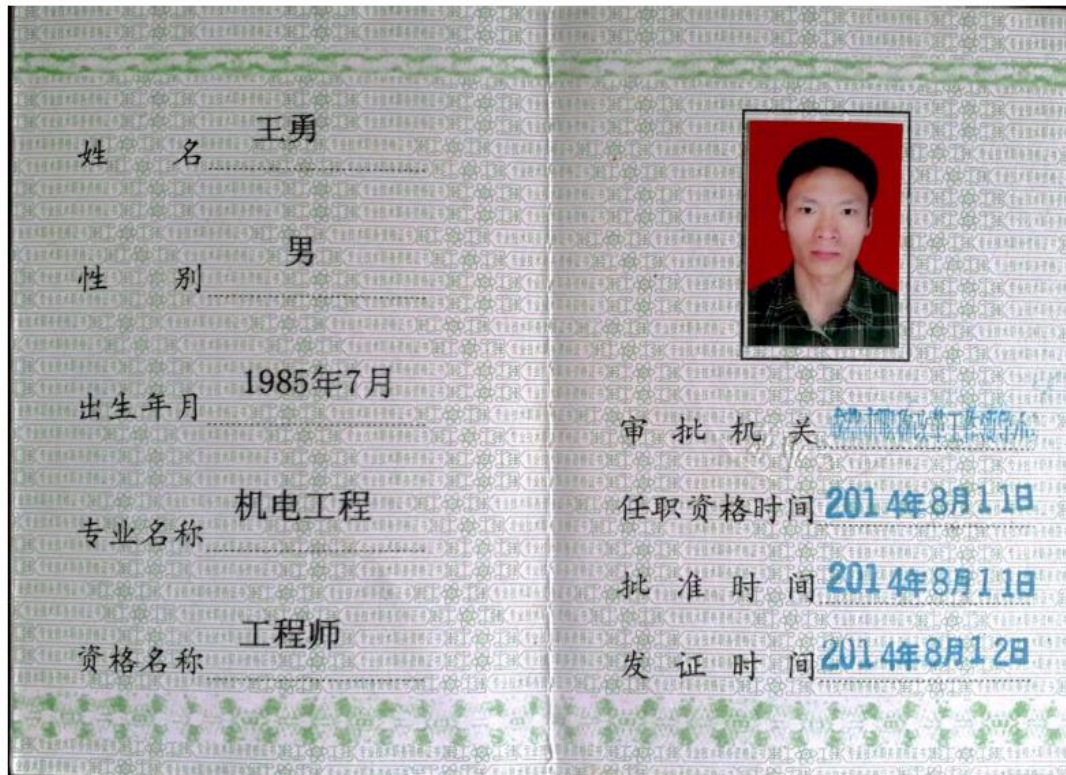 姓 名 王勇
性 别 男
出生年月 1985年7月
专业名称 机电工程
资格名称 工程师
审批机关 市职称改革工作领导小
任职资格时间 2014年8月11日
批准时间 2014年8月11日
发证时间 2014年8月12日